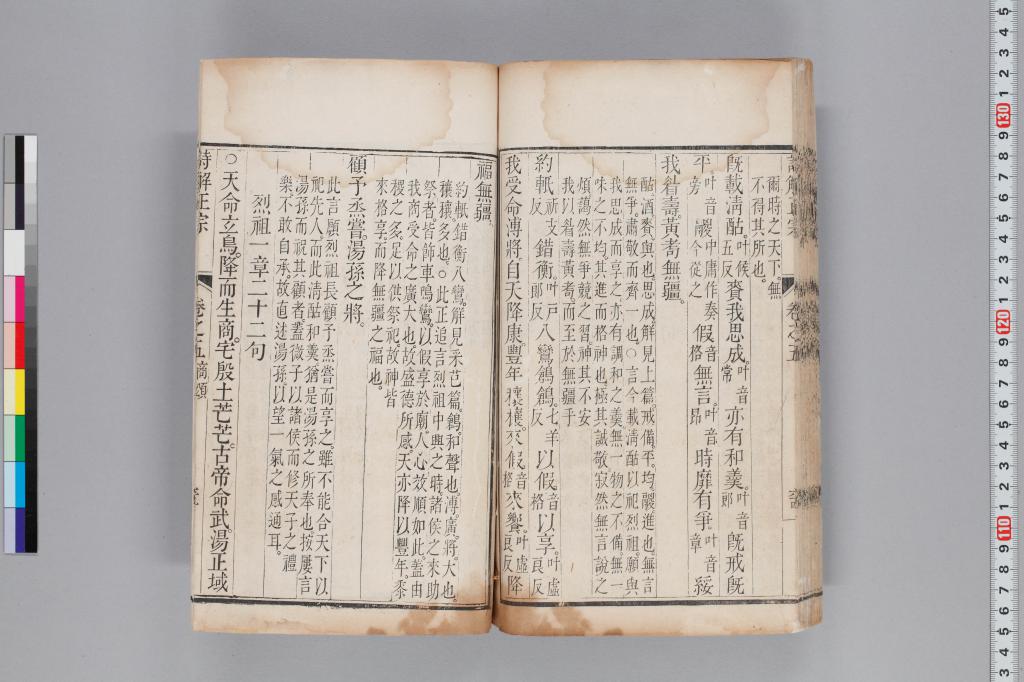 爾時之天下無
不得其所也。
既載淸酤。叶候五反賚我思成。叶音常亦有和羹。叶音郎既戒既
平。叶音旁鬷中庸作奏今從之假音格無言。叶音昂時靡有爭叶音章綏
我眉壽。黃耇無疆。
酤酒賚與也思成解見上篇戒備。平。均。鬷進也無言
無爭。肅敬而齊一也。○言今載淸酤以祀烈祖。願與
我思成而享之亦有調和之羹。無一物之不備。無一
味之不均。其進而格神也極其誠敬寂然無言說之
煩。藹然無爭競之習。神其不安
我以眉壽黃耇而至於無疆乎
約軝祈支反錯衡。叶戶郎反八鸞鶬鶬。七羊反以假音格以享。叶虛良反
我受命溥將。自天降康豐年穰穰。來假音格來饗。叶虛良反降
福無疆。
約軝錯衡八鸞。解見采芑篇。鶬。和聲也。溥。廣。將。大也。
穰穰。多也。○此正追言烈祖中興之時。諸侯之來助
祭者。皆飾車鳴鸞。以假享於廟。人心效順如此。蓋由
我商受命之廣大也。故盛德所感。天亦降以豐年。黍
稷之多。足以供祭祀。故神皆
來格享而降無疆之福也。
顧予烝嘗。湯孫之將。
此言願烈祖長顧予烝嘗而享之。雖不能合天下以
祀先人而此淸酤和羹猶是湯孫之所奉也按屢言
湯孫而祝其顧者蓋微子以諸侯而修天子之禮
樂不敢自承。故直述湯孫以望一氣之感通耳。
烈祖一章二十二句
○天命玄鳥。降而生商。宅殷土芒芒。古帝命武。湯正域
詩解正宗
卷之五商頌
卷之五